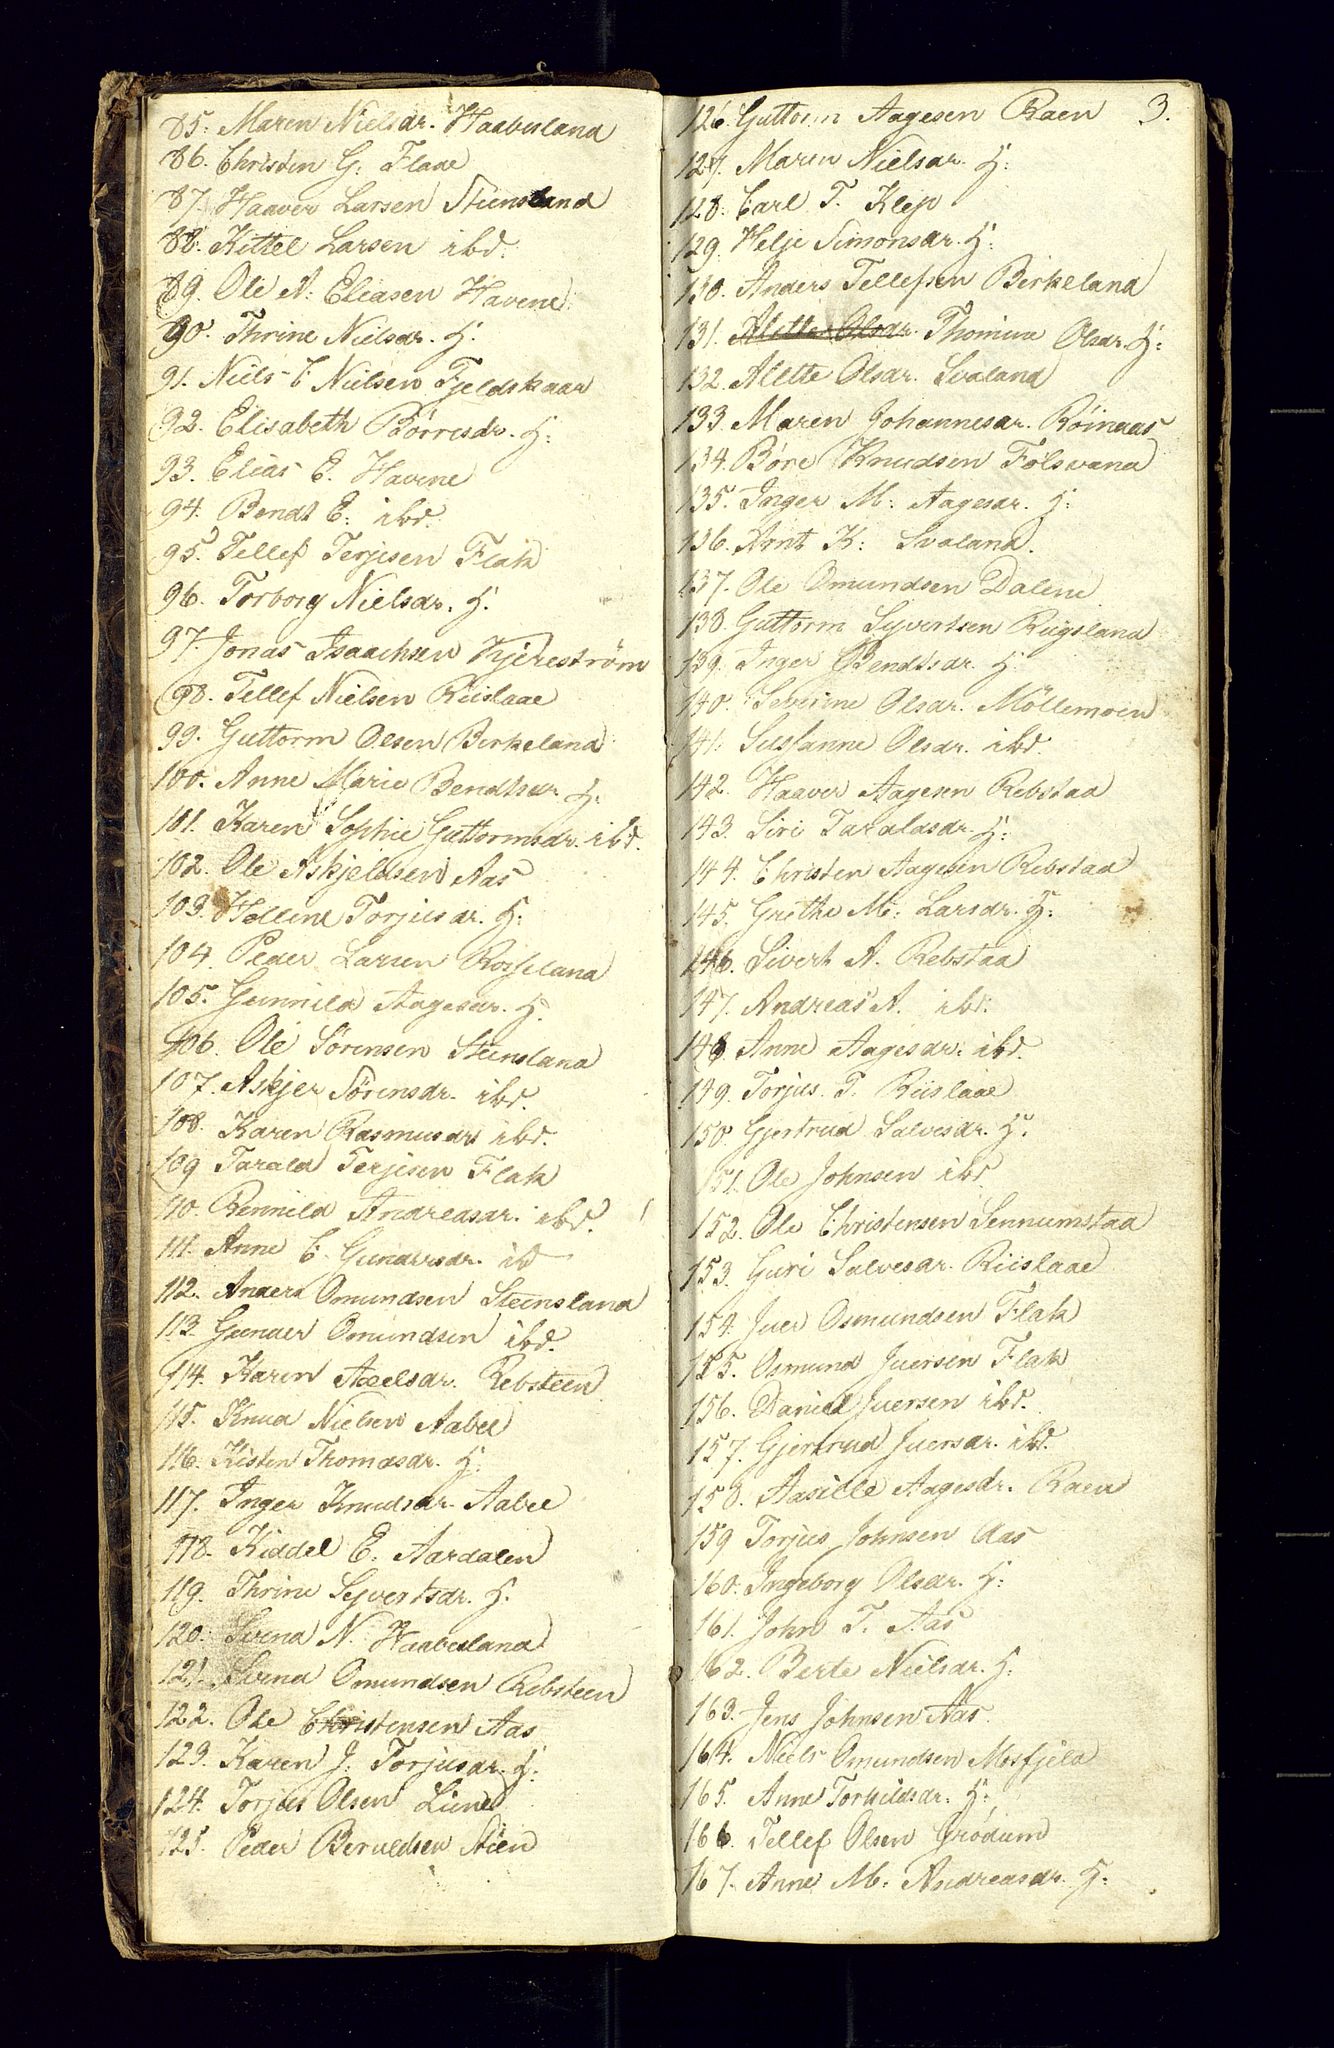 85. Maren Nielsdr. Haabesland
86. Christen G: Flaae
87. Haaver Larsen Steensland
88. Kittel Larsen ibd.
89. Ole A: Eliasen Havene
90. Thrine Nielsdr. H.
91. Niels C Nielsen Fjeldskaar
92. Elisabeth Börresdr. H:
93. Elias E. Havene
94. Bendt E: ibd.
95. Tellef Terjesen Flak
96. Torborg Nielsdr. H.
97. Jonas Isaachsen Kjereström
98. Tellef Nielsen Riislaae
99. Guttorm Olsen Birkeland
100. Anne Marie Bendtsdr. H.
101. Karen Sophie Guttormsdr. ibd.
102. Ole Askjeldsen Aas
103. Helline Torjusdr. H.
104. Peder Larsen Rosseland
105. Gunnild Aagesdr. H.
106. Ole Sörensen Steensland
107. Askjer Sörensdr. ibd.
108. Karen Rasmusdr ibd.
109 Tarald Terjesen Flak
110. Rennild Andreasdr. ibd.
111. Anne C. Gundersdr. ibd
112. Anders Omundsen Steensland
113. Gunder Omundsen ibd.
114. Karen Axelsdr. Rebsteen
115. Knud Nielsen Aabel
116. Kisten Thomasdr. H.
117. Inger Knudsdr. Aabel
118. Kiddel E. Aardalen
119. Thrine Syvertsdr. H.
120. Svend N. Haabesland
121. Svend Omundsen Rebsteen
122. Ole Christensen Aas
123. Karen J. Torjusdr. H.
124. Torjus Olsen Liene
125. Peder Beruldsen Steen
3.
126. Guttorm Aagesen Raen
127. Maren Nielsdr. H:
128. Carl T. Klep
129. Helje Simonsdr. H:
130. Anders Tellefsen Birkeland
131. Alette Olsdr. Thomine Olsdr. H:
132. Alette Olsdr. Svaland
133. Maren Johannesdr. Röinaas
134. Böre Knudsen Fölsvand
135. Inger M: Aagesdr. H:
136. Arnt K: Svaland.
137. Ole Omundsen Dalene
138. Guttorm Syvertsen Rugsland
139. Inger Bendtsdr. H
140. Severine Olsdr. Möllemoen
141. Susanne Olsdr. ibd.
142. Haaver Aagesen Rebstaa
143. Siri Taraldsdr. H:
144. Christen Aagesen Rebstaa
145. Grethe M: Larsdr. H:
146. Sivert A. Rebstaa
147. Andreas A. ibd.
148. Anne Aagesdr. ibd.
149. Torjus T. Riislaae
150. Gjertrud Salvesdr. H.
151. Ole Johnsen ibd.
152. Ole Christensen Sennumstaa
153. Guri Salvesdr. Riislaae
154. Iver Osmundsen Flak
155. Osmund Iversen Flak
156. Daniel Iversen ibd.
157. Gjertrud Iversdr. ibd.
158. Aasille Aagesdr. Raen
159 Torjus Johnsen Aas
160. Ingeborg Olsdr. H:
161. John T. Aas
162. Berte Nielsdr. H:
163. Jens Johnsen Aas
164. Niels Omundsen Mosfjeld
165. Anne Torkildsdr. H:
166. Tellef Olsen Grödum
167. Anne M: Andreasdr. H: